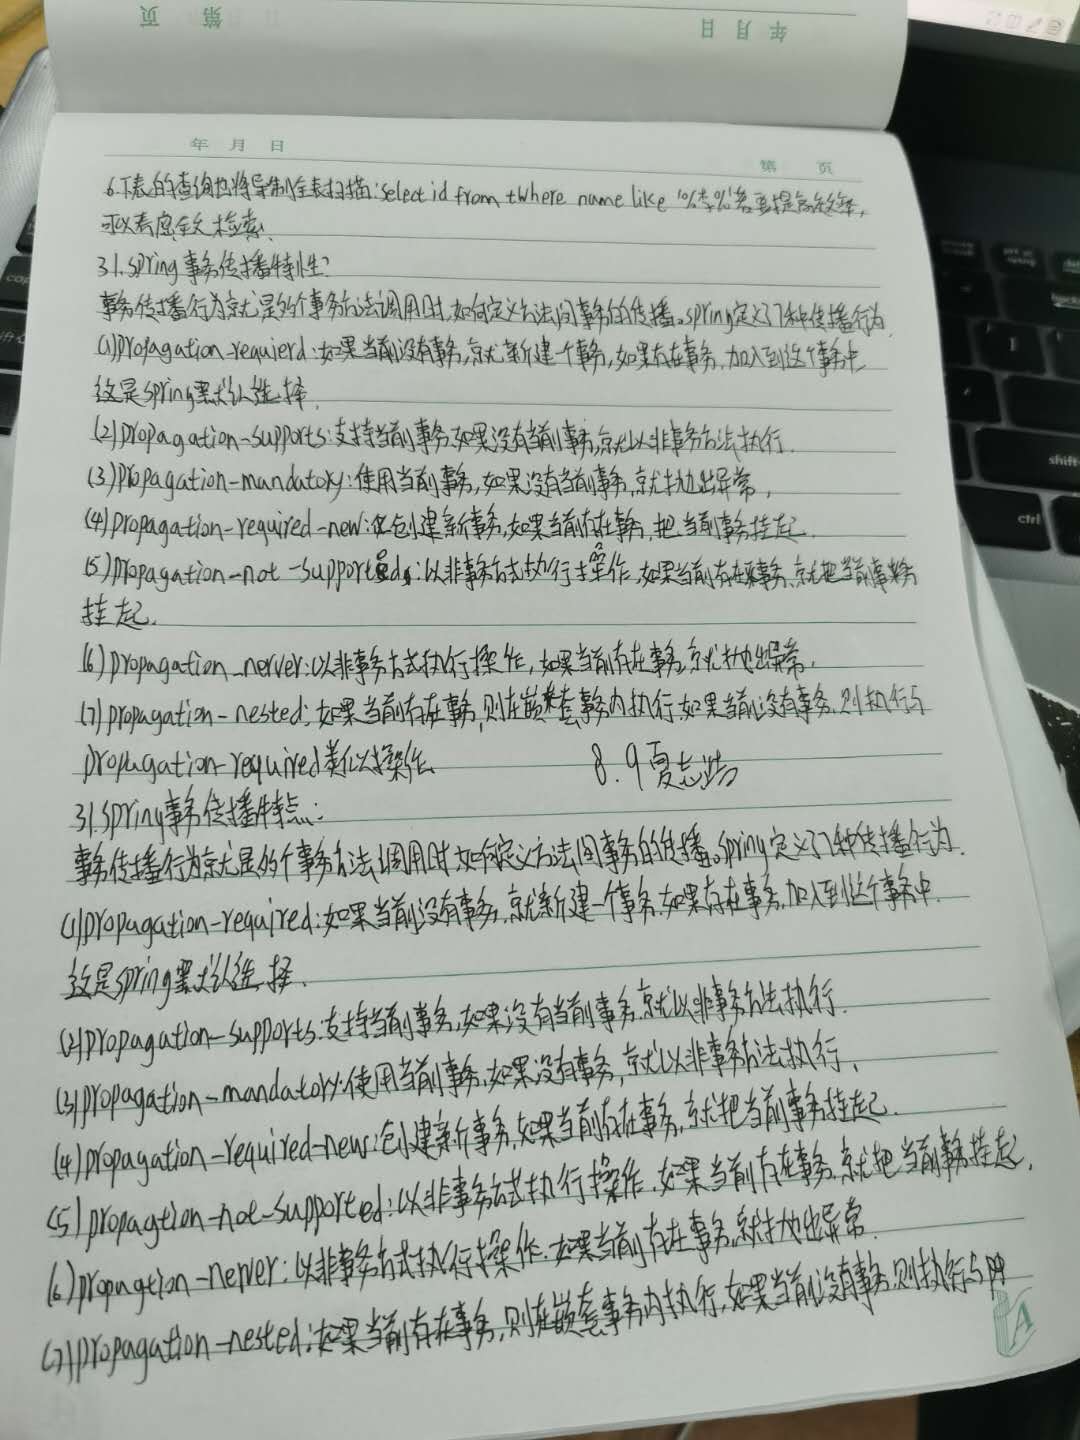 页 第 日 月 年
年 月 日
第 页
6.下表的查询也将导制全表扫描:select id from t where name like '%李%'若要提高效率,
可以考虑全文检索.
31.spring事务传播特性:
事务传播行为就是多个事务方法调用时,如何定义方法间事务的传播。spring定义了7种传播行为
(1)propagation-requierd:如果当前没有事务,就新建一个事务,如果存在事务,加入到这个事务中,
这是spring默认选择.
(2)propagation-supports:支持当前事务,如果没有当前事务,就以非事务方法执行.
(3)propagation-mandatory:使用当前事务,如果没有当前事务,就抛出异常,
(4)propagation-required-new:创建新事务,如果当前存在事务,把当前事务挂起.
(5)propagation-not-supported:以非事务方式执行操作,如果当前存在事务,就把当前事务
挂起.
(6)propagation_nerver:以非事务方式执行操作,如果当前存在事务,就抛出异常.
(7)propagation-nested:如果当前存在事务,则在嵌套事务内执行,如果当前没有事务,则执行与
propagation-required类似操作
8.9夏志浩
31.spring事务传播特点:
事务传播行为就是多个事务方法调用时,如何定义方法间事务的传播。spring定义了7种传播行为.
(1)propagation-required:如果当前没有事务,就新建一个事务,如果存在事务,加入到这个事务中.
这是spring默认选择.
(2)propagation-supports:支持当前事务,如果没有当前事务,就以非事务方法执行.
(3)propagation-mandatory:使用当前事务,如果没有事务,就以非事务方法执行,
(4)propagation-required-new:创建新事务,如果当前存在事务,就把当前事务挂起.
(5)propagtion-not-supported:以非事务方式执行操作,如果当前存在事务,就把当前事务挂起.
(6)propagtion-nerver:以非事务方式执行操作.如果当前存在事务,就抛出异常.
(7)propagation-nested:如果当前存在事务,则在嵌套事务内执行,如果当前没有事务,则执行与
shift
ctrl